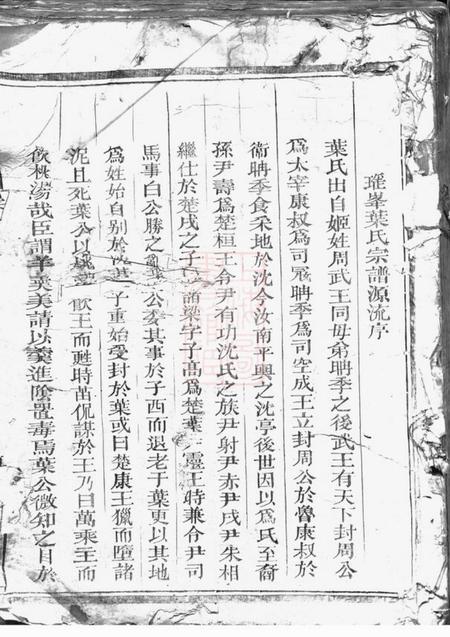 瑤峯葉氏宗譜源流序
葉氏出自姬姓周武王同母弟聃季之後武王有天下封周公
為太宰康叔為司寇聃季為司空成王立封周公於魯康叔於
衞聃季食采地於沈今汝南平輿之沈亭後世因以為氏至裔
孫尹壽為楚桓王令尹有功沈氏之族尹射尹赤尹戌尹朱相
繼仕於楚戌之子諸梁字子高為楚葉 靈王時兼令尹司
馬事白公勝之亂葉公委其事於子西而退老于葉更以其地
為姓始自別於沈 子重始受封於葉或曰楚康王獵而墮諸
泥且死葉公以 歃王而甦時苗侃謀於王乃曰萬乘王而
飲桃湯哉臣謂羊羮美請以羮進陰置毒焉葉公微知之目於